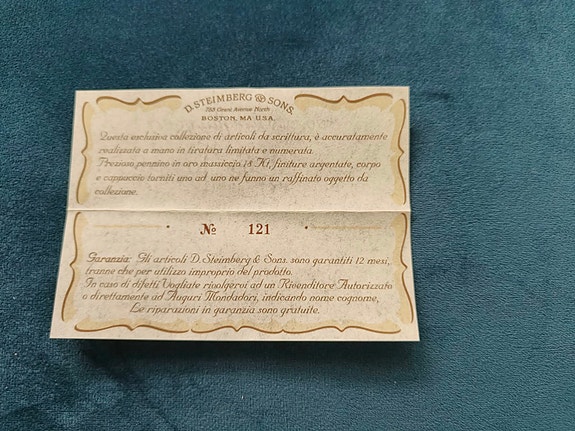 D. STEIMBERG & SONS.
Avenue North
BOSTON, MA U.S.A.
Questa esclusiva collezione di articoli da scrittura, è accuratamente
realizzata a mano in tiratura limitata e numerata.
Prezioso pennino in oro massiccio 18 Kt, finiture argentate, corpo
e cappuccio torniti uno ad uno ne fanno un raffinato oggetto da
collezione.
№ 121
Garanzia: Gli articoli D. Steimberg & Sons. sono garantiti 12 mesi,
tranne che per utilizzo improprio del prodotto.
In caso di difetti Vogliate rivolgervi ad un Rivenditore Autorizzato
o direttamente ad Auguri Mondadori, indicando nome cognome,
Le riparazioni in garanzia sono gratuite.